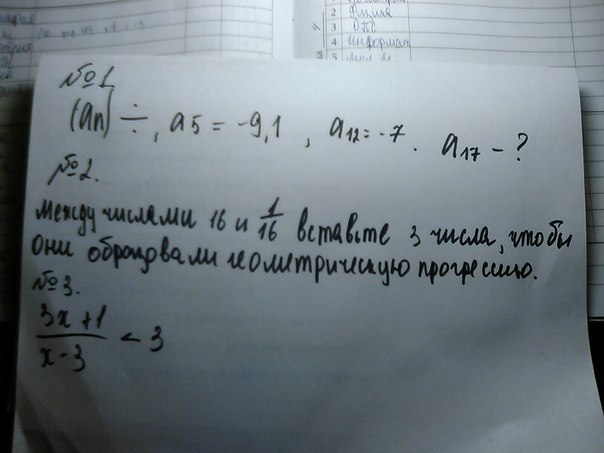 2 Физика
3 ОБЖ
4 Информат
5
№1
(an) ÷, a5 = -9,1 , a12 = -7. a17 - ?
№2.
Между числами 16 и 1/16 вставьте 3 числа, чтобы
они образовали геометрическую прогрессию.
№3.
3x+1 / x-3 < 3